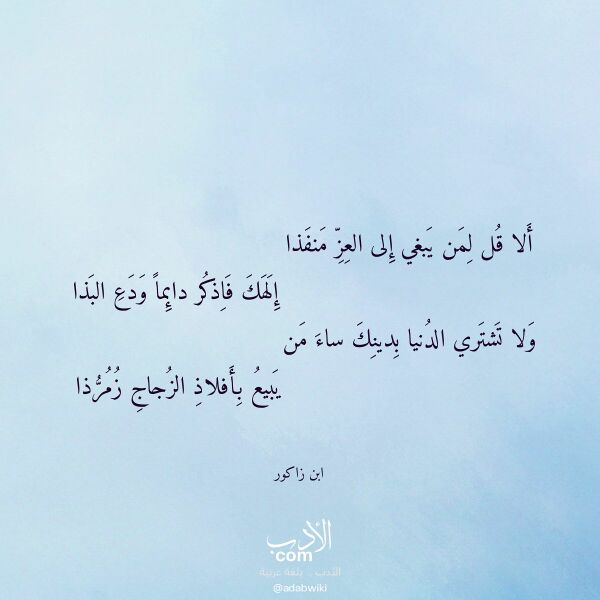 أَلا قُل لِمَن يَبغي إِلى العِزِّ مَنفَذا
إِلَهَكَ فَاِذكُر دائِماً وَدَعِ البَذا
وَلا تَشتَري الدُنيا بِدينِكَ ساءَ مَن
يَبيعُ بِأَفلاذِ الزُجاجِ زُمُرُّذا
ابن زاكور
الأدب
com
الأدب .. بلغة عربية
@adabwiki